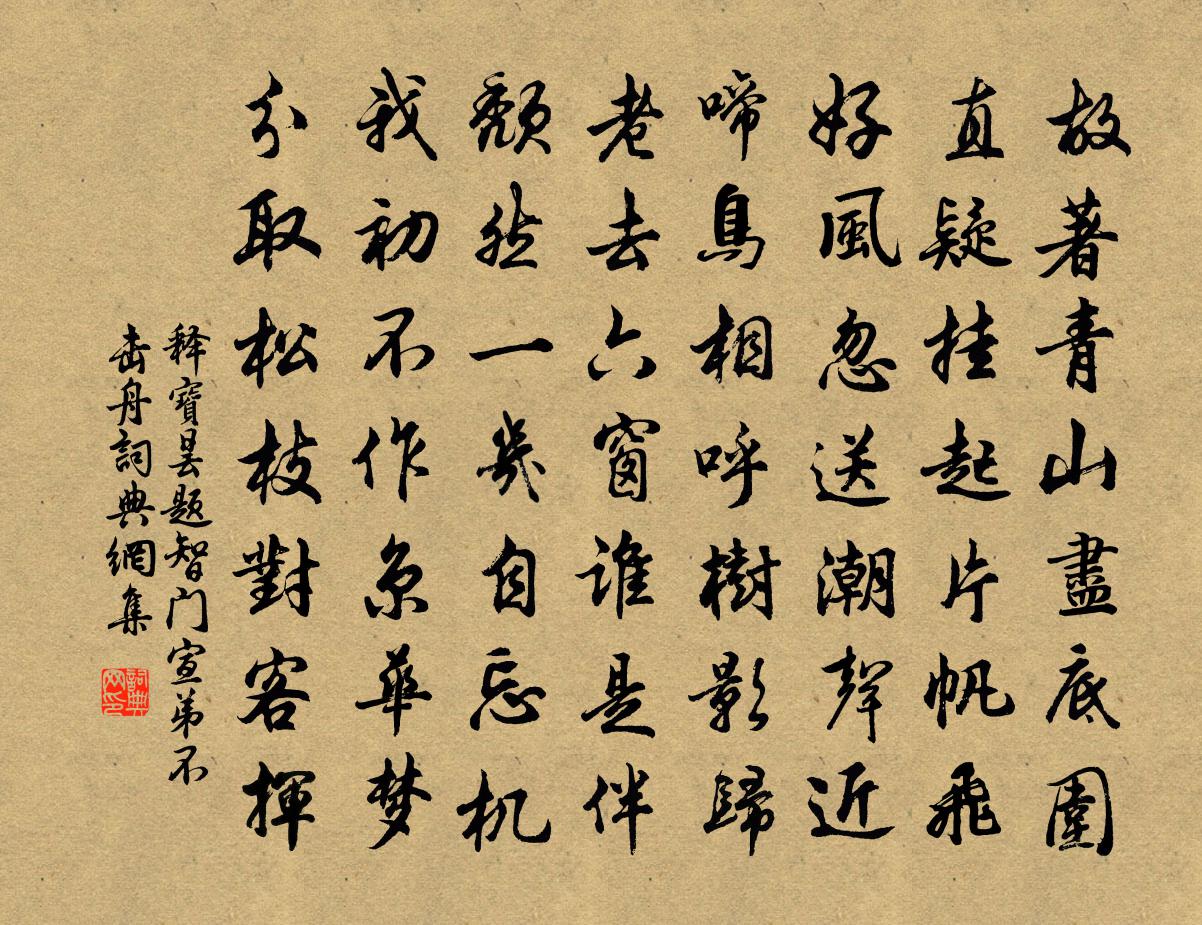 故著青山盡底圍
直疑挂起片帆飛
好風忽送潮聲近
啼鳥相呼樹影歸
老去六窗誰是伴
頹然一幾自忘机
我初不作京華梦
分取松枝對客揮
释寶昙题智门宣弟不
击舟詞典網集
詞典网印